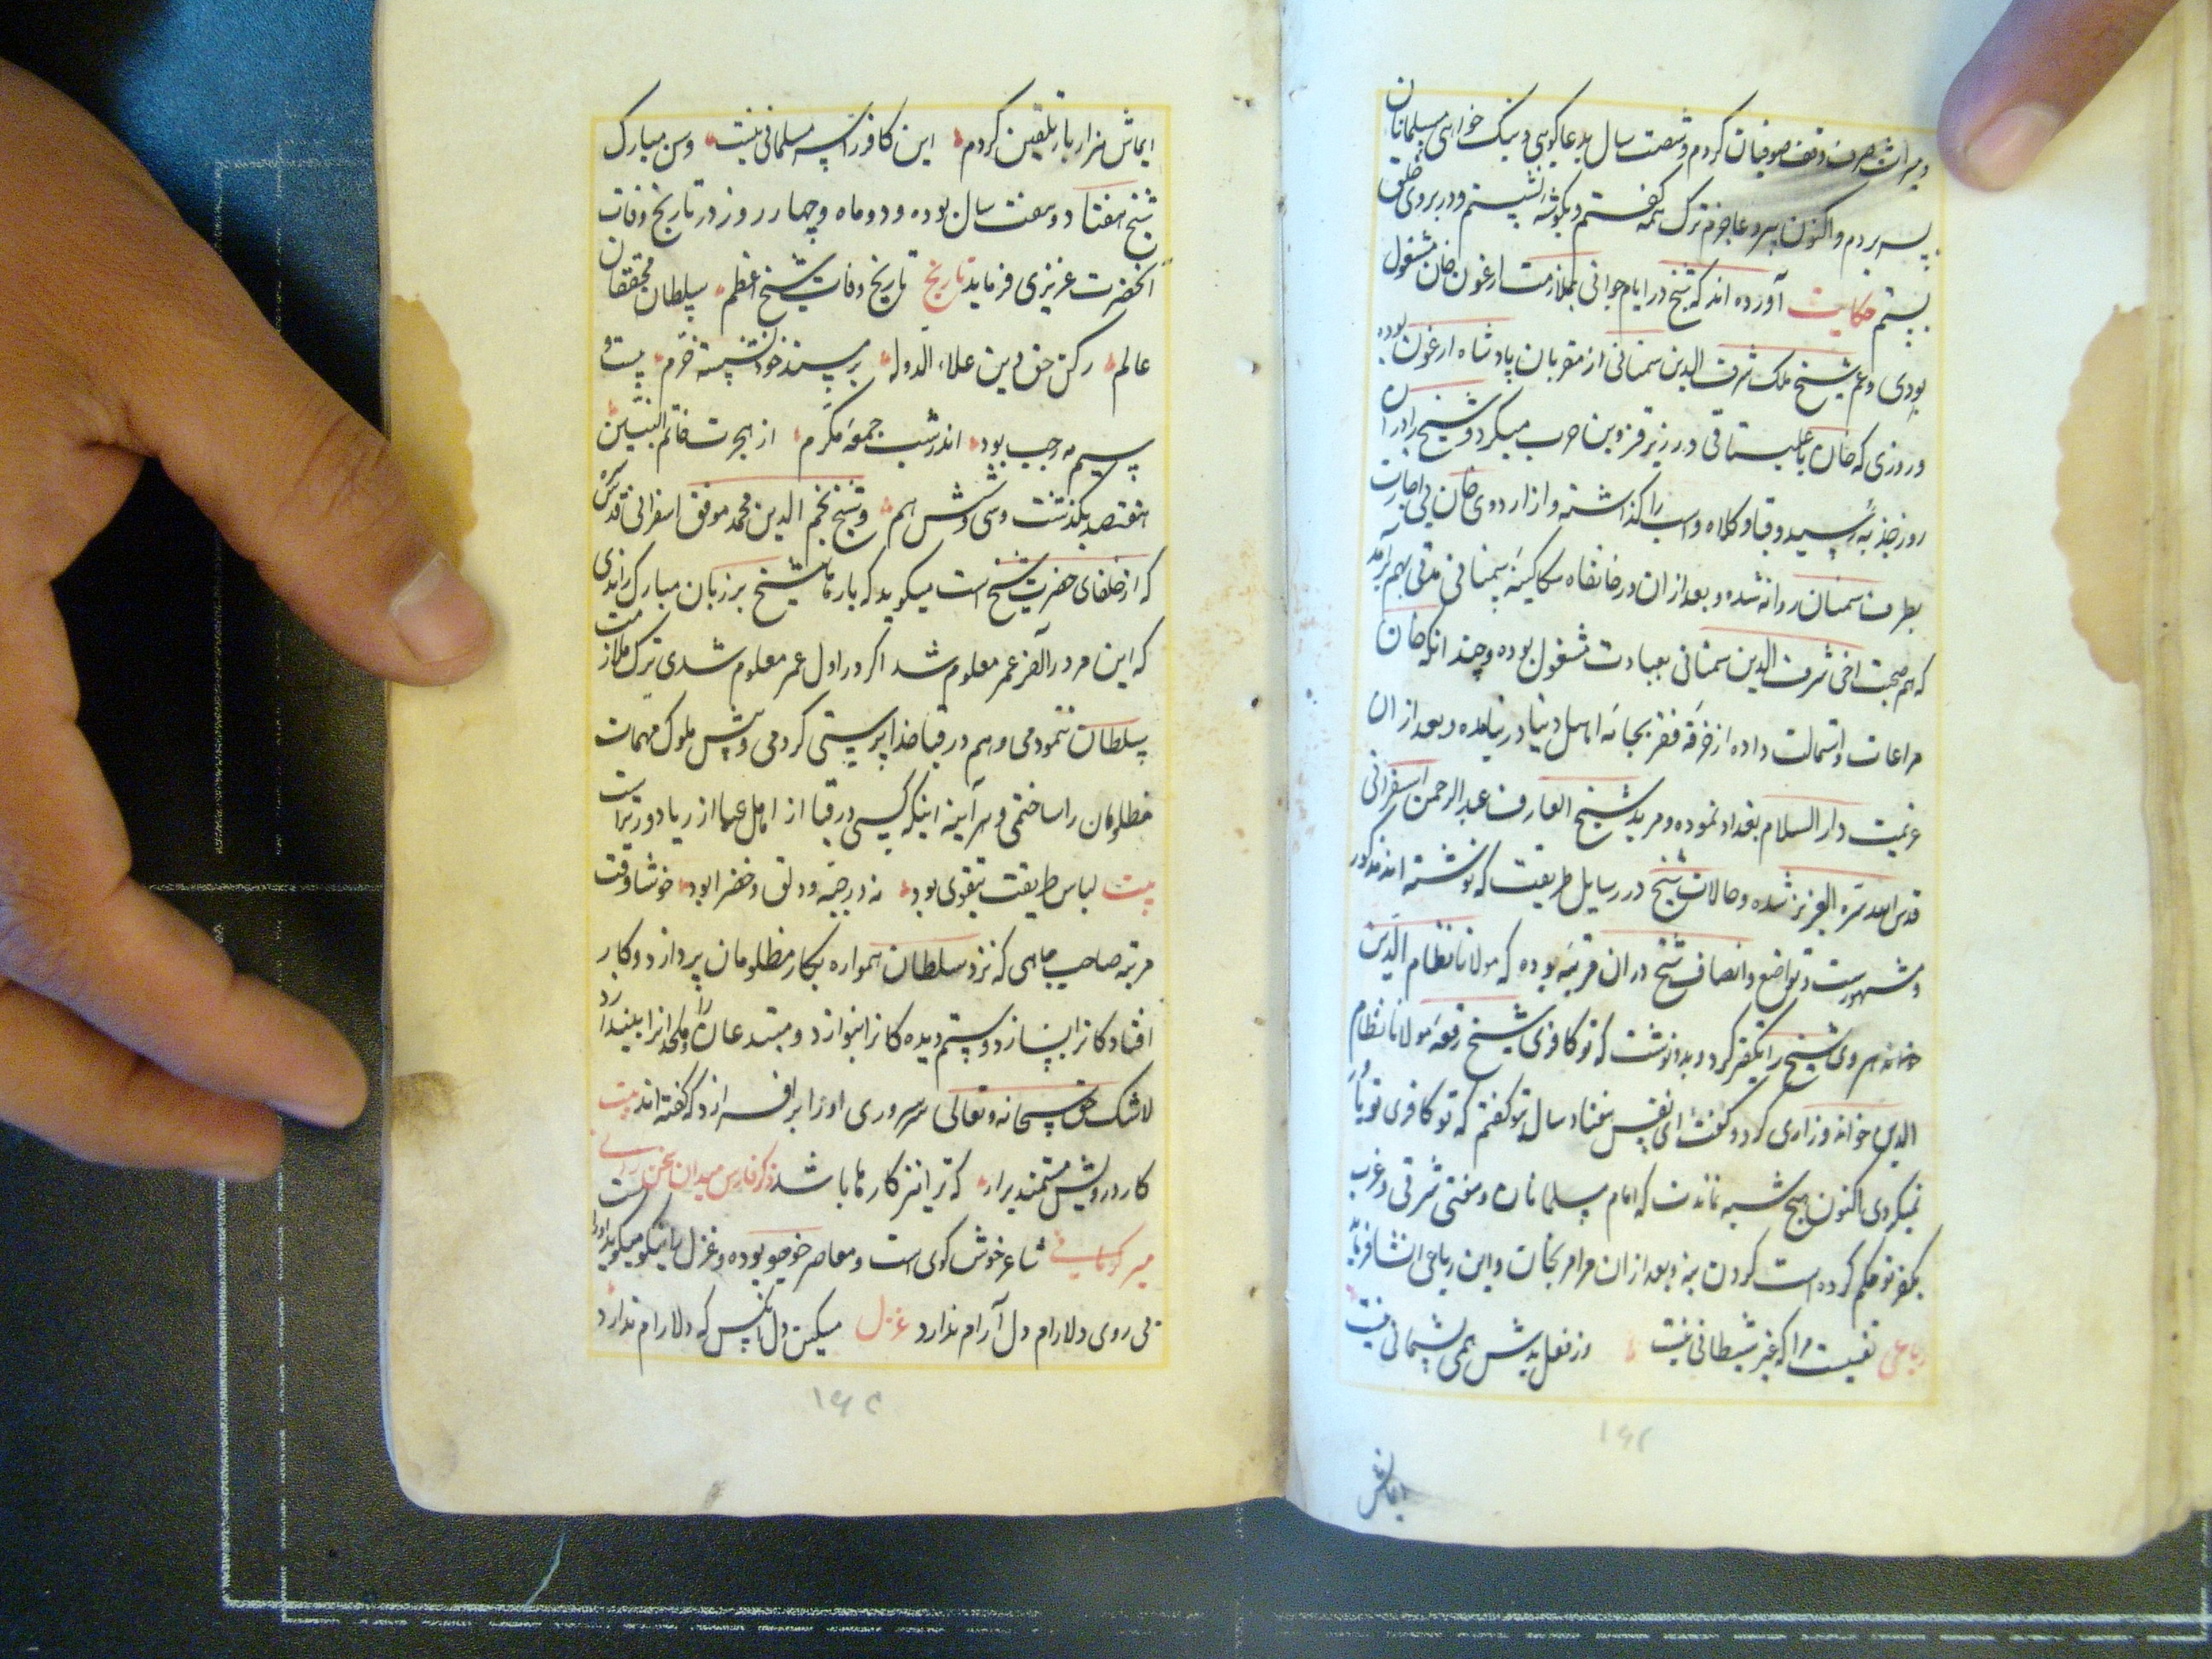 و میراث صرف وقف صوفیان کردم و شصت سال بدعاکویی و نیک خواهی مسلمانان
بسر بردم و اکنون پیر و عاجزم ترک همه کفتم و بکوشه نشستم و در بروی خلق
ببستم حکایت آورده اند که شیخ در ایام جوانی بملازمت ارغون خان مشغول
بودی و عم شیخ ملک شرف الدین سمنانی از مقربان پادشاه ارغون بوده
و روزی که خان با علیناق در زیر قزوین حرب میکرد و شیخ را در آن
روز جذبهٔ رسید و قبا و کلاه و اسب را کذاشته و از اردوی خان بی اجازت
بطرف سمنان روانه شده و بعد از ان در خانقاه سکاکیهٔ سمنانی مدتی بهم برآمد
که هم صحبت اخی شرف الدین سمنانی بعبادت مشغول بوده و چند انکه خان
مراعات و استمالت داده از خرقه فقر بجانه اهل دنیا در نیامده و بعد از ان
عزیمت دار السلام بغداد نموده و مرید شیخ العارف عبد الرحمن اسفراینی
قدس الله سره العزیز شده و حالات شیخ در رسایل طریقت که نوشته اند مذکور
و مشهورست و تواضع و انصاف شیخ دران مرتبه بوده که مولانا نظام الدین
هروی شیخ را تکفیر کرد و بدو نوشت که تو کافری شیخ رقعهٔ مولانا نظام
الدین خوانده و زاری کرد و کفت ای نفس هفتاد سال بتو کفتم که تو کافری تو باور
نمیکردی اکنون هیچ شبهه نماندت که امام مسلمانان و مفتی شرق و غرب
بکفر تو حکم کرده است کردن بنه و بعد از ان مرا مرنجان و این رباعی انشا فرماید
رباعی نفسیست مرا که غیر شیطانی نیست وز فعل بدش همی پشیمانی نیست
ایمانش
ایمانش هزار بار تلقین کردم این کافر را سر مسلمانی نیست و سن مبارک
شیخ هفتاد و هفت سال بوده و دو ماه و چهار روز در تاریخ وفات
انحضرت عزیزی فرماید تاریخ تاریخ وفات شیخ اعظم سلطان محققان
عالم رکن حق و دین علاء الدوله بر مسند خود نشسته خرم بیست و
سیم مه رجب بود اندر شب جمعهٔ مکرم از هجرت خاتم النبیین
هفتصد بکذشت و سی و شش هم و شیخ نجم الدین محمد موفق اسفراینی قدس سره
که از خلفای حضرت شیخ است میکوید که بارها شیخ بر زبان مبارک راندی
که این مرد را آخر عمر معلوم شد اکر در اول عمر معلوم شدی ترک ملازمت
سلطان ننمودمی و هم در قبا خدا پرستی کردمی و پیش ملوک مهمات
مظلومان را ساختمی و هر آینه اینکه کسی در قبا از اهل عبا از ریا دور تراست
بیت لباس طریقت بتقوی بود نه در جبه و دلق و خضرا بود خوشا وقت
مرتبه صاحب جاهی که نزد سلطان همواره بکار مظلومان پردازد و کار
افتادکانرا بسازد و ستم دیده کانرا بنوازد و مبتدعان را و ملحدانرا بیندازد
لاشک حق سبحانه و تعالی سر سروری او را بر افرازد که کفته اند بیت
کار درویش مستمند برار که ترا نیز کارها باشد ذکر فارس میدان سخن رانی
میر کرمانی شاعر خوش کوی است و معاصر خواجو بوده و غزل را نیکو میکوید او راست
بی روی دلارام دل آرام ندارد غزل مسکین دل انکس که دلارام ندارد